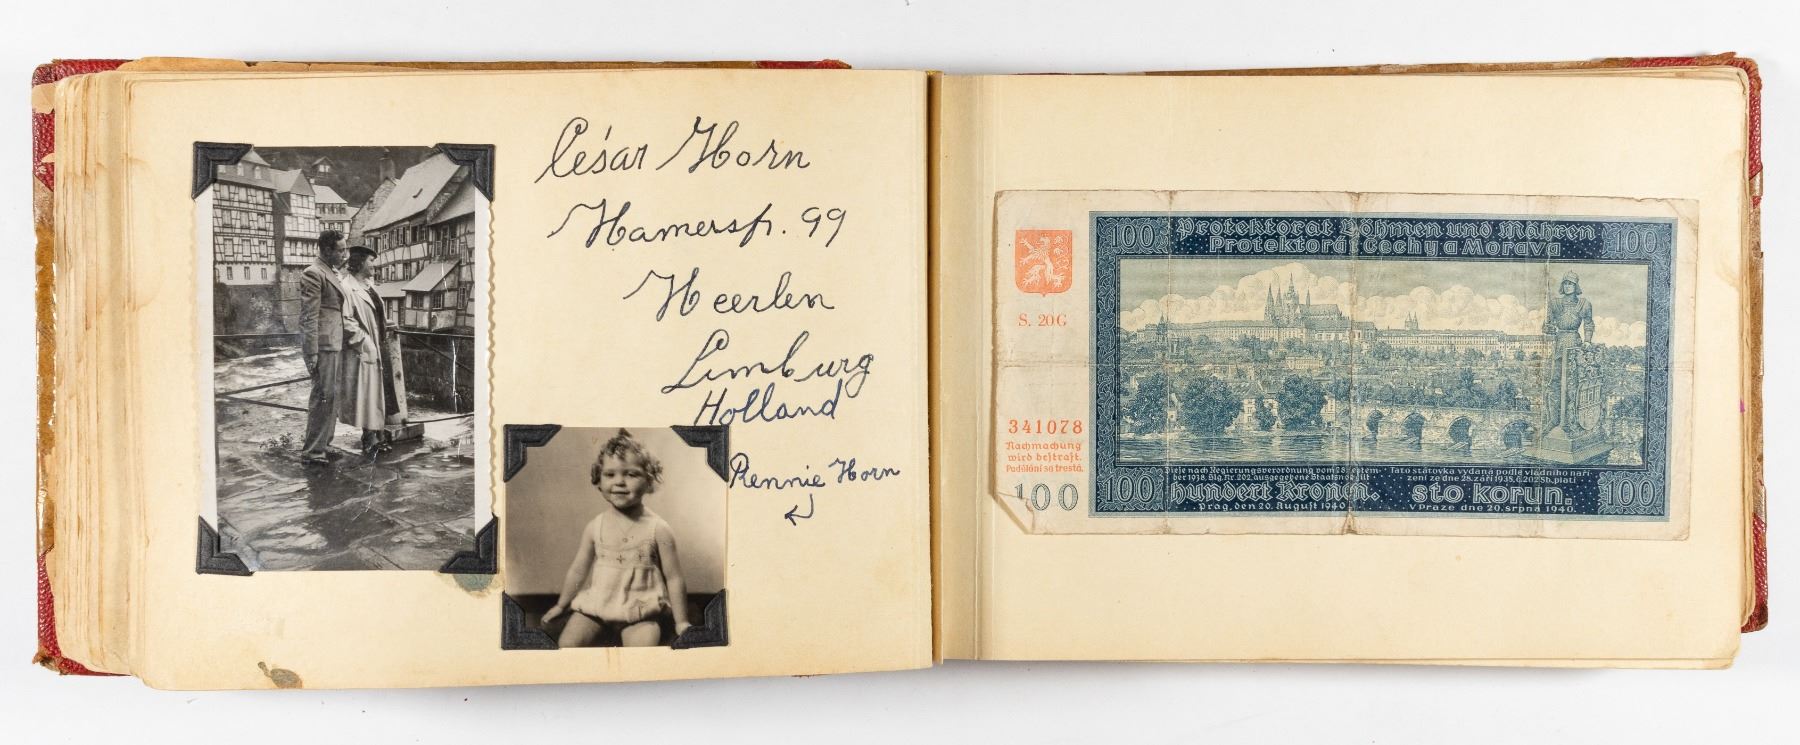 César Horn
Hamerstr. 99
Heerlen
Limburg
Holland
Rennie Horn
100 Protektorat Böhmen und Mähren 100
Protektorát Čechy a Morava
S. 20G
341078
Nachmachung
wird bestraft.
Padělání se trestá.
100
100 100
Diese nach Regierungsverordnung vom 28. Septem-
ber 1938, Slg. Nr. 202, ausgegebene Staatsnote gilt
hundert Kronen.
Prag, den 20. August 1940
Tato státovka vydaná podle vládního naří-
zení ze dne 28. září 1938, č. 202 Sb. platí
sto korun.
V Praze dne 20. srpna 1940.